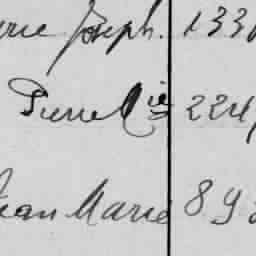 Joseph. 133
Pierre 224
Jean Marie 89